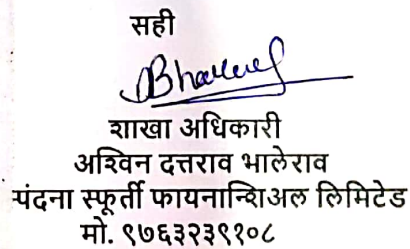 सही
Bhalerao
शाखा अधिकारी
अश्विन दत्तराव भालेराव
स्पंदना स्फूर्ती फायनान्शिअल लिमिटेड
मो. ९७६३२३९१०८